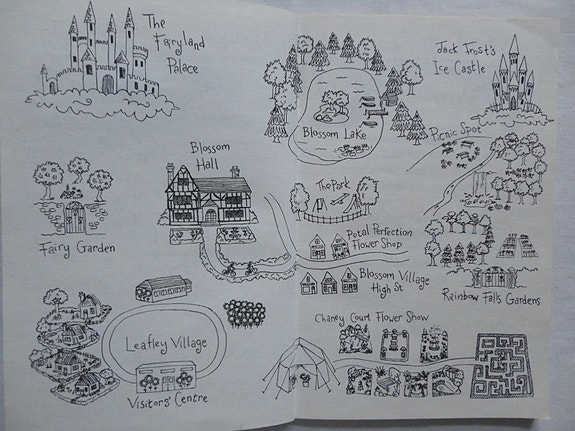 The
Fairyland
Palace
Jack Frost's
Ice Castle
Blossom Lake
Picnic Spot
Blossom
Hall
The Park
Fairy Garden
Petal Perfection
Flower Shop
Blossom Village
High St
Rainbow Falls Gardens
Leafley Village
Chaney Court Flower Show
Visitors' Centre